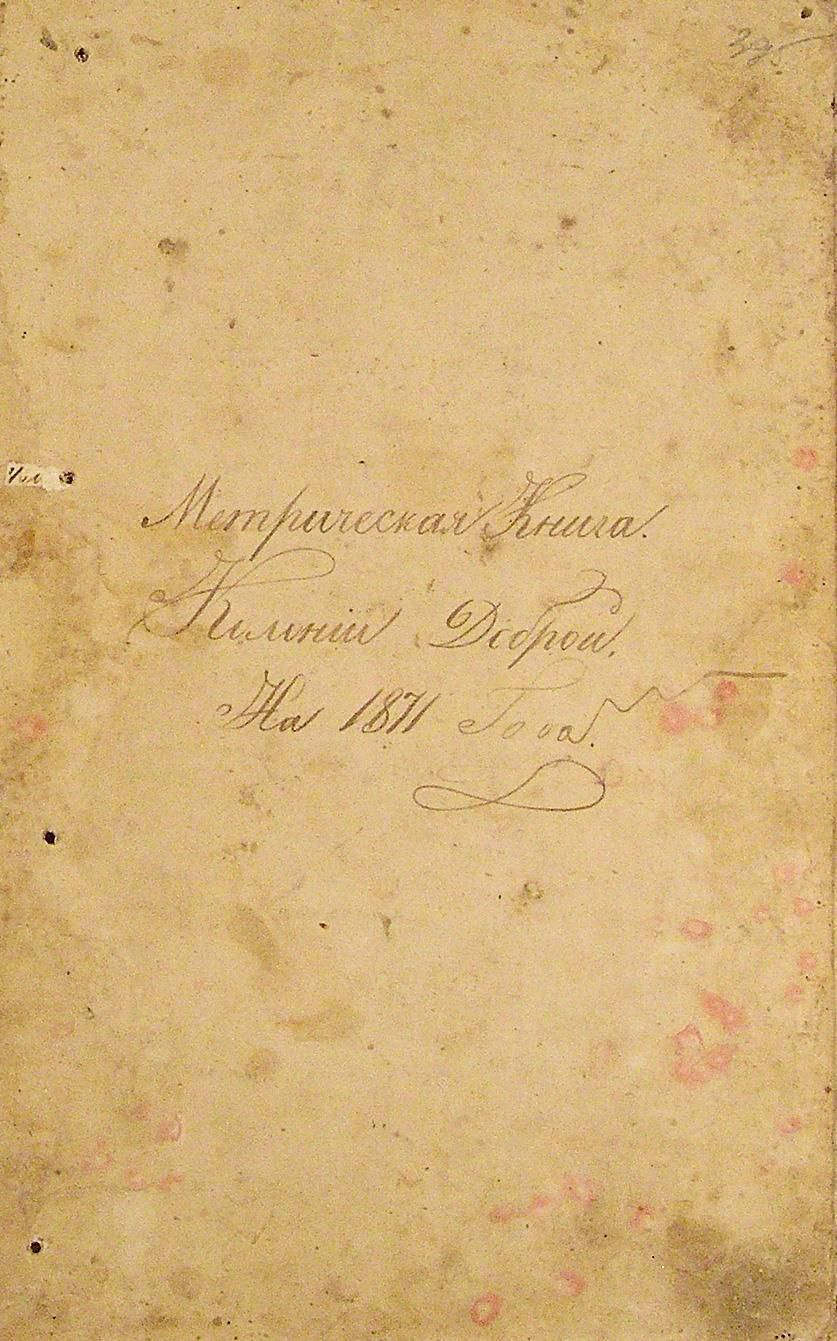 Метрическая Книга.
Доброй.
На 1871 Года.